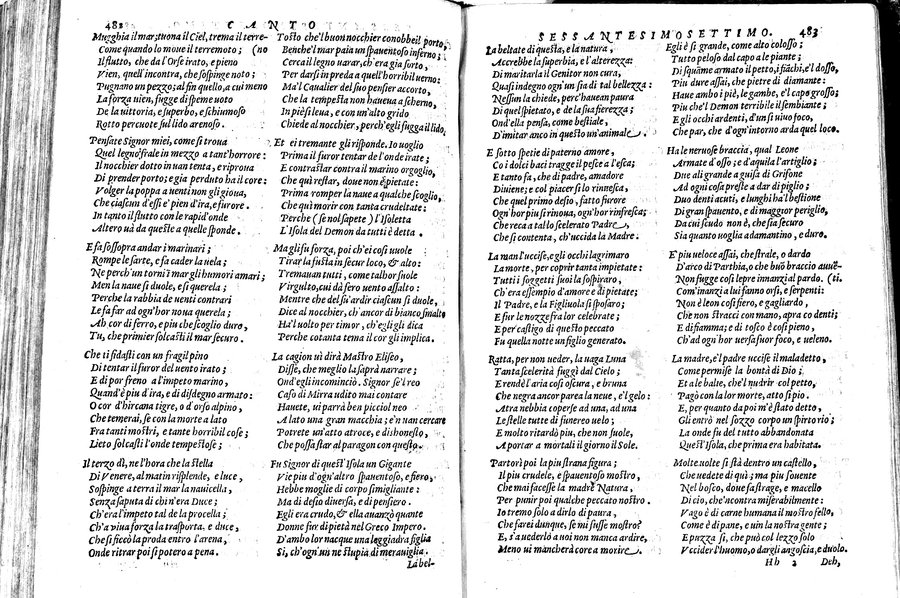 482 CANTO
Mugghia il mar; tuona il Ciel, trema il terre-
Come quando lo moue il terremoto; (no
Il flutto, che da l'Orse irato, e pieno
Vien, quell'incontra, che sospinge noto;
Pugnano un pezzo; al fin quello, a cui meno
La forza uien, fugge di speme uoto
De la uittoria, e superbo, e schiumoso
Rotto percuote sul lido arenoso.
Pensate Signor miei, come si troua
Quel legno frale in mezzo a tant'horrore:
Il nocchier dotto in uan tenta, e riproua
Di prender porto; e gia perduto ha il core:
Volger la poppa a uenti non gli gioua,
Che ciascun d'essi e' pien d'ira, e furore.
In tanto il flutto con le rapid'onde
Altero uà da queste a quelle sponde.
E fa sossopra andar i marinari;
Rompe le sarte, e fa cader la uela;
Ne perch'un torni i mar gli humori amari;
Men la naue si duole, e si querela;
Perche la rabbia de uenti contrari
Le fa far ad ogn'hor noua querela;
Ah cor di ferro, e piu che scoglio duro,
Tu, che primier solcasti il mar securo.
Che ti fidasti con un fragil pino
Di tentar il furor del uento irato;
E di por freno a l'impeto marino,
Quand'è piu d'ira, e di disdegno armato:
O cor d'hircana tigre, o d'orso alpino,
Che temerai, se con la morte a lato
Fra tanti mostri, e tante horribil cose;
Lieto solcasti l'onde tempestose;
Il terzo dì, ne l'hora che la stella
Di Venere, al matin risplende, e luce,
Sospinge a terra il mar la nauicella,
Senza saputa di chi n'era Duce;
Ch'era l'impeto tal de la procella;
Ch'a viua forza la trasporta, e duce,
Che si ficcò la proda entro l'arena,
Onde ritrar poi si potero a pena.
Tosto che'l buon nocchier conobbe il porto,
Benche'l mar paia un spauentoso inferno;
Cerca il legno uarar, ch'era gia sorto,
Per darsi in preda a quell'horribil uerno:
Ma'l Caualier del suo pensier accorto,
Che la tempesta non haueua a scherno,
In piè si leua, e con un'alto grido
Chiede al nocchier, perch'egli fugga il lido,
Et ei tremante gli risponde. Io uoglio
Prima il furor tentar de l'onde irate;
E contrastar contra il marino orgoglio,
Che quì restar, doue non è pietate:
Prima romper la naue a qualche scoglio,
Che quì morir con tanta crudeltate:
Perche (se nol sapete) l'Isoletta
L'Isola del Demon da tutti è detta.
Ma gli fu forza, poi ch'ei così uuole
Tirar la fusta in secur loco, & alto:
Tremauan tutti, come talhor suole
Virgulto, cui dà fero uento assalto:
Mentre che del su'ardir ciascun si duole,
Dice al nocchier, ch'ancor di bianco smalto
Ha'l uolto per timor, ch'egli gli dica
Perche cotanta tema il cor gli implica.
La cagion ui dirà Mastro Eliseo,
Disse, che meglio la saprà narrare;
Ond'egli incominciò. Signor se'l reo
Caso di Mirra udito mai contare
Hauete, ui parrà ben picciol neo
A lato una gran macchia; e'n uan cercare
Potrete un'atto atroce, e dishonesto,
Che possa star al paragon con questo.
Fu Signor di quest'Isola un Gigante
Vie piu d'ogn'altro spauentoso, e fiero,
Hebbe moglie di corpo simigliante:
Ma di desio diuersa, e di pensiero.
Egli era crudo, & ella auanzò quante
Donne fur di pietà nel Greco Impero.
D'ambo lor nacque una leggiadra figlia
Sì, ch'ogn'un ne stupia di merauiglia.
La bel-
SESSANTESIMOSETTIMO. 483
La beltate di questa, e la natura,
Accrebbe la superbia, e l'alterezza:
Di maritarla il Genitor non cura,
Quasi indegno ogn'un sia di tal bellezza:
Nessun la chiede, perc'hauean paura
Di quel spietato, e de la sua fierezza;
Ond'ella pensa, come bestiale,
D'imitar anco in questo un'animale.
E sotto spetie di paterno amore,
Co i dolci baci tragge il pesce a l'esca;
E tanto fa, che di padre, amadore
Diuiene; e col piacer si lo rinnesca,
Che quel primo desio, fatto furore
Ogn'hor piu si rinoua, ogn'hor rinfresca;
Che reca a tal lo scelerato Padre,
Che si contenta, ch'uccida la Madre.
La man l'uccise, e gli occhi lagrimaro
La morte, per coprir tanta impietate:
Tutti i soggetti suoi la sospiraro,
Ch'era essempio d'amore e di pietate;
Il Padre, e la Figliuola si sposaro;
E fur le nozze fra lor celebrate;
E per castigo di questo peccato
Fu quella notte un figlio generato.
Ratta, per non ueder, la uaga Luna
Tanta scelerità fuggì dal Cielo;
E rendè l'aria così oscura, e bruna
Che negra ancor parea la neue, e'l gelo:
Atra nebbia coperse ad una, ad una
Le stelle tutte di funereo uelo;
E molto ritardò piu, che non suole,
A portar a mortali il giorno il Sole.
Partorì poi la piu strana figura;
Il piu crudele, e spauentoso mostro,
Che mai facesse la madre Natura,
Per punir poi qualche peccato nostro.
Io tremo solo a dirlo di paura,
Che farei dunque, se mi fusse mostro?
E, s'a uederlo a uoi non manca ardire,
Meno ui mancherà core a morire.
Egli è sì grande, come alto colosso;
Tutto peloso dal capo a le piante;
Di squame armato il petto, i fiãchi, e'l dosso,
Piu dure assai, che pietre di diamante:
Haue ambo i piè, le gambe, e'l capo grosso;
Piu che'l Demon terribile il sembiante;
Egli occhi ardenti, d'un sì uiuo foco,
Che par, che d'ogn'intorno arda quel loco.
Ha le neruose braccia, qual Leone
Armate d'osso; e d'aquila l'artiglio;
Due ali grande a guisa di Grifone
Ad ogni cosa preste a dar di piglio;
Duo denti acuti, e lunghi ha'l bestione
Di gran spauento, e di maggior periglio,
Da cui scudo non è, che sia securo
Sia quanto uoglia adamantino, e duro.
E' piu veloce assai, che strale, o dardo
D'arco di Parthia, o che buõ braccio auuẽ-
Non fugge così lepre innanzi al pardo. (ti.
Com'inanzi a lui fanno orsi, e serpenti:
Non è leon così fiero, e gagliardo,
Che non stracci con mano, apra co denti;
E di fiamma; e di tosco è così pieno,
Ch'ad ogn'hor uersa fuor foco, e ueleno.
La madre, e'l padre uccise il maladetto,
Come permise la bontà di Dio;
Et a le balte, che'l nudrir col petto,
Pagò con la lor morte, atto sì pio.
E, per quanto da poi m'è stato detto,
Gli entrò nel sozzo corpo un spirto rio;
La onde fu del tutto abbandonata
Quest'Isola, che prima era habitata.
Molte uolte si stà dentro un castello,
Che uedete di quì; ma piu souente
Nel bosco, doue fa strage, e macello
Di cio, che'ncontra miserabilmente:
Vago è di carne humana il mostro fello,
Come è di pane, e uin la nostra gente;
E puzza sì, che può col lezzo solo
Vccider l'huomo, o dargli angoscia, e duolo.
Hh 2 Deh,